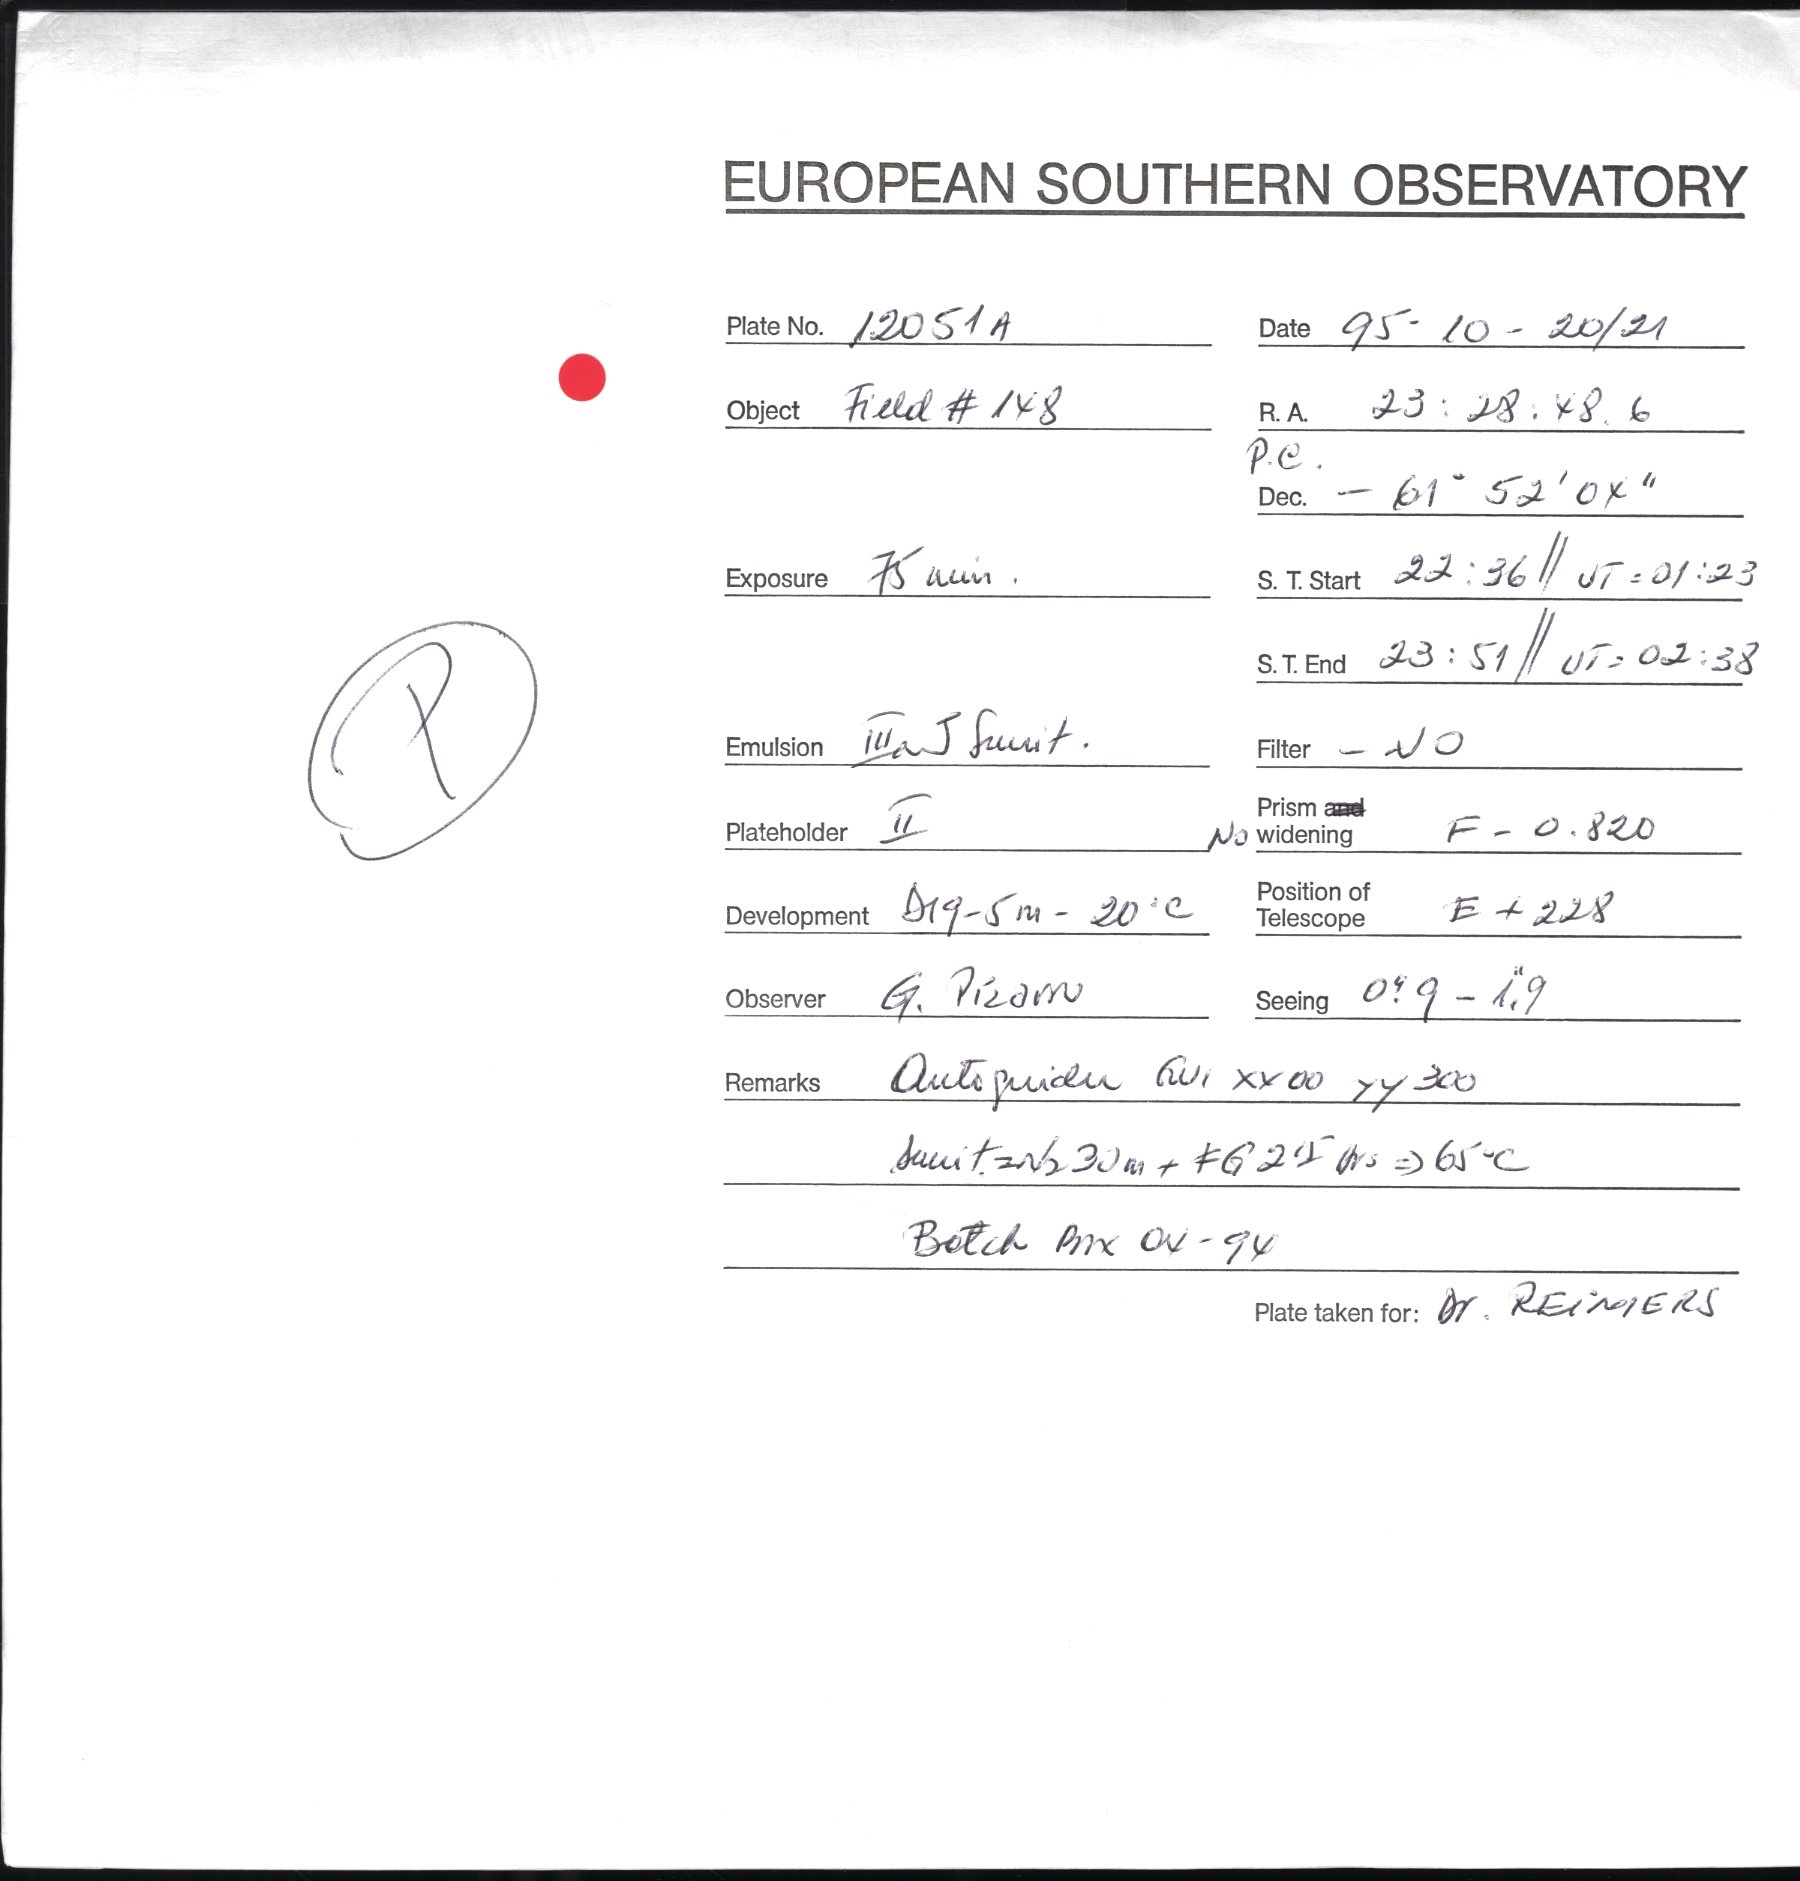 EUROPEAN SOUTHERN OBSERVATORY
Plate No. 12051A
Date 95-10-20/21
Object Field # 148
R. A. 23:28:48.6
P.C.
Dec. - 61° 52' 04"
Exposure 75 min.
S. T. Start 22:36 // UT = 01:23
S. T. End 23:51 // UT = 02:38
P
Emulsion IIIaJ
Filter - NO
Plateholder II
Prism and
No widening F - 0.820
Development D19-5m - 20°C
Position of
Telescope E + 228
Observer G. Pizarro
Seeing 0".9 - 1".9
Remarks Autoguider
30m + FG 2 hrs => 65°C
Batch 04-94
Plate taken for: Dr. REIMERS